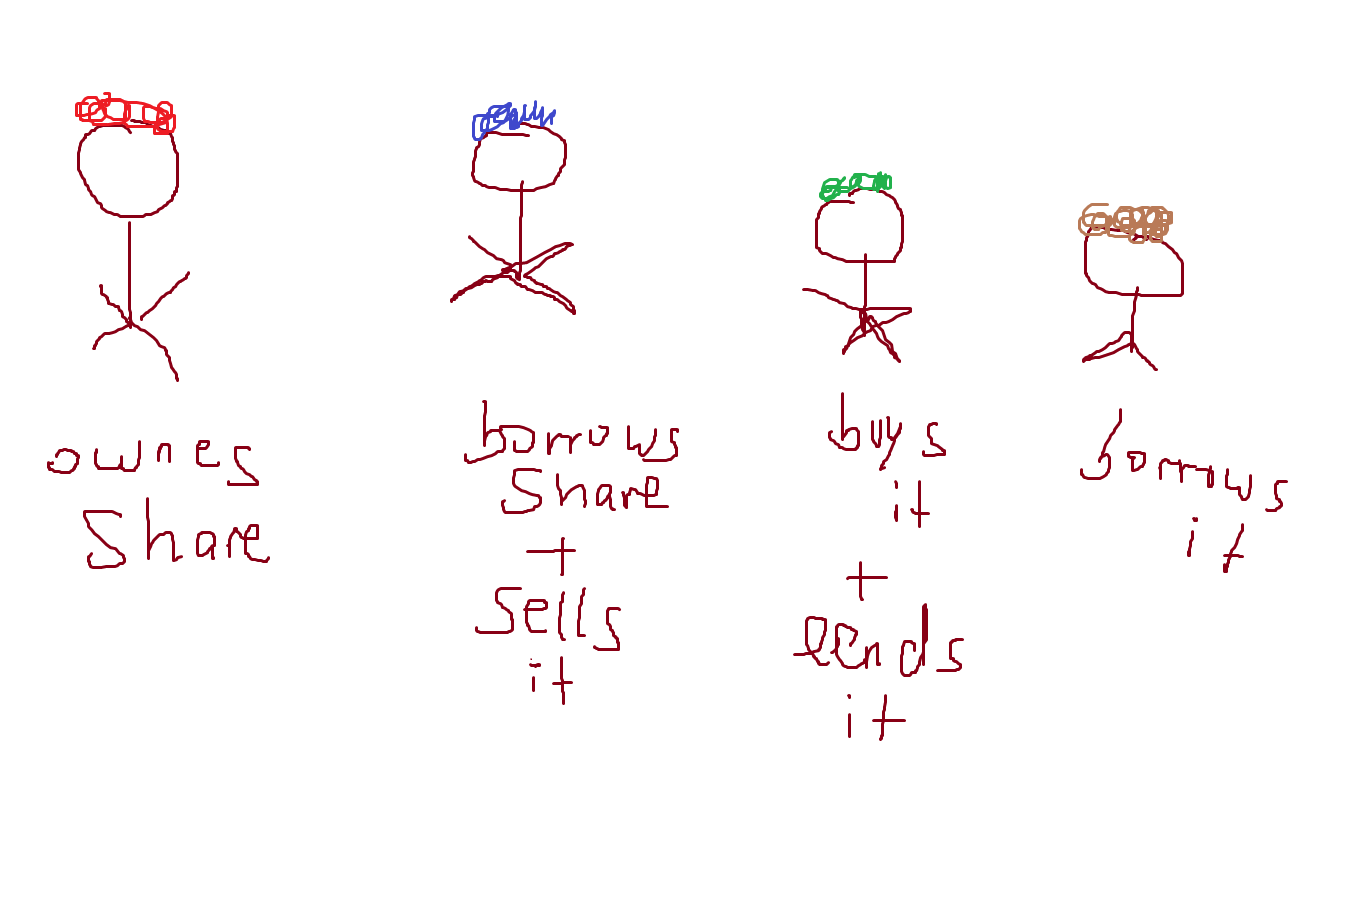 ownes
Share
borrows
Share
+
Sells
it
buys
it
+
lends
it
borrows
it